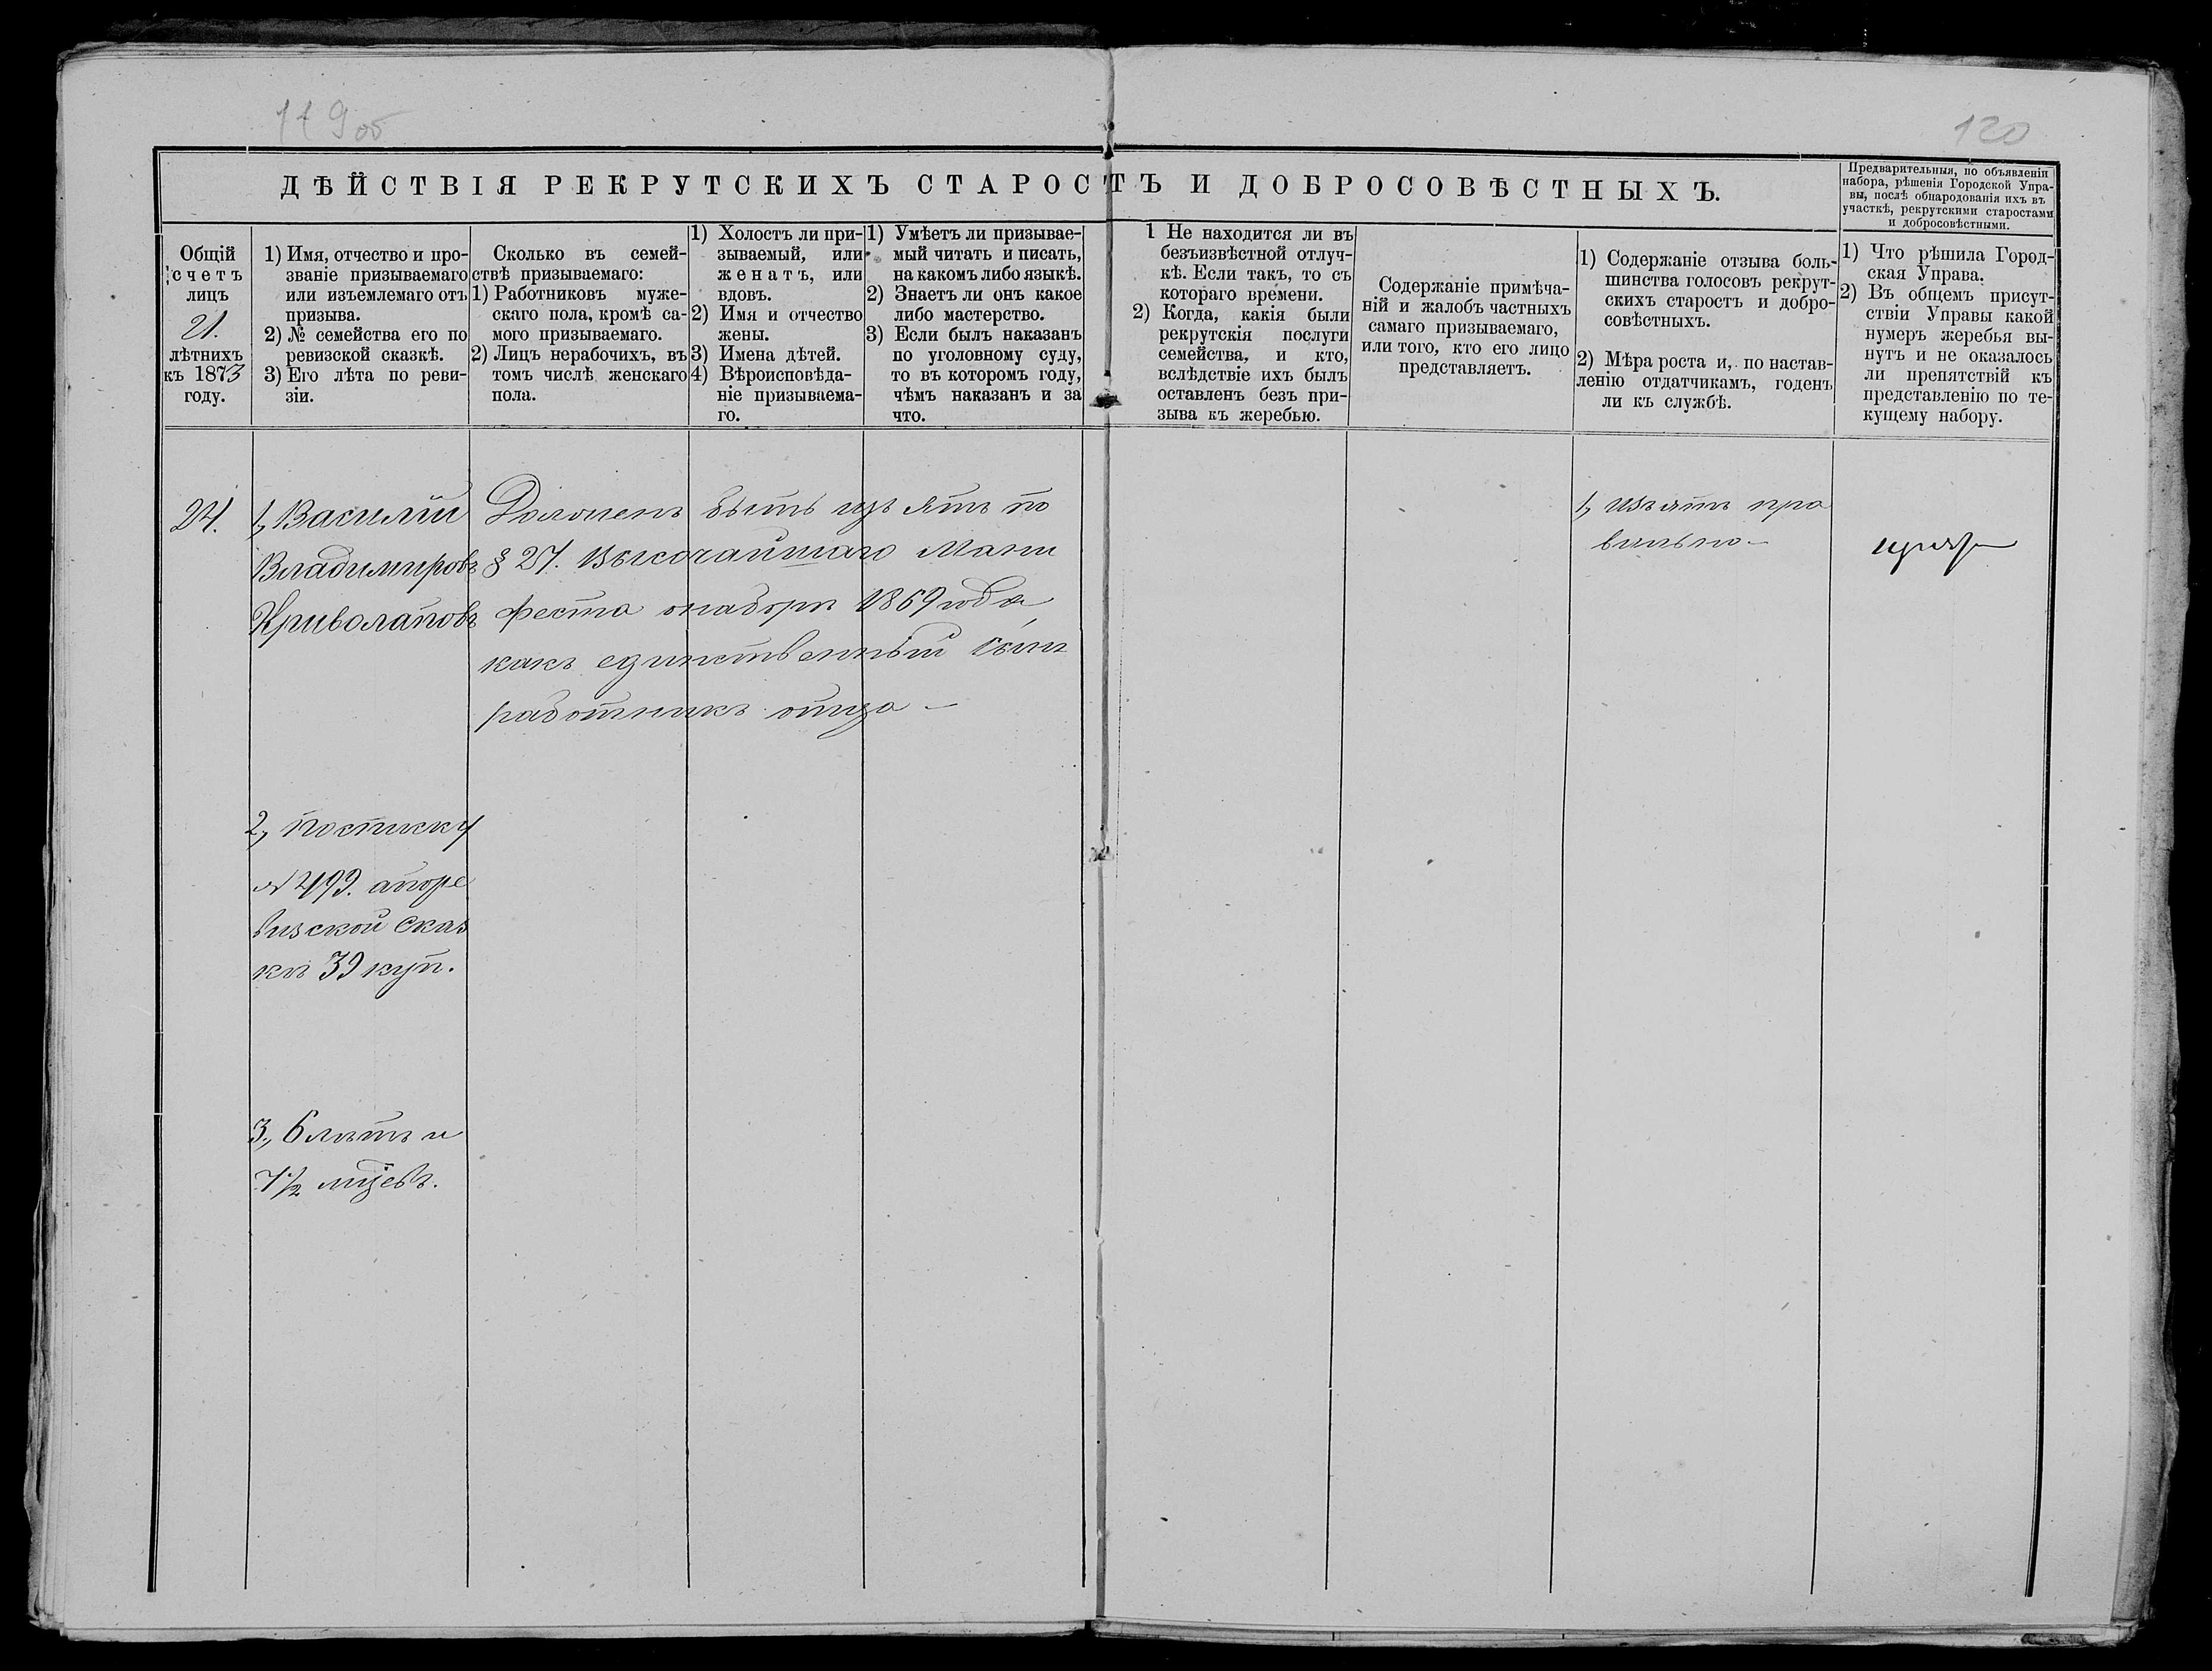 119 об
120
ДѢЙСТВІЯ РЕКРУТСКИХЪ СТАРОСТЪ И ДОБРОСОВѢСТНЫХЪ.
Предварительныя, по объявленіи
набора, рѣшенія Городской Упра-
вы, послѣ обнародованія ихъ въ
участкѣ, рекрутскими старостами
и добросовѣстными.
Общій
счетъ
лицъ
21.
лѣтнихъ
къ 1873
году.
1) Имя, отчество и про-
званіе призываемаго
или изъемлемаго отъ
призыва.
2) № семейства его по
ревизской сказкѣ.
3) Его лѣта по реви-
зіи.
Сколько въ семей-
ствѣ призываемаго:
1) Работниковъ муже-
скаго пола, кромѣ са-
мого призываемаго.
2) Лицъ нерабочихъ, въ
томъ числѣ женскаго
пола.
1) Холостъ ли при-
зываемый, или
женатъ, или
вдовъ.
2) Имя и отчество
жены.
3) Имена дѣтей.
4) Вѣроисповѣда-
ніе призываема-
го.
1) Умѣетъ ли призывае-
мый читать и писать,
на какомъ либо языкѣ.
2) Знаетъ ли онъ какое
либо мастерство.
3) Если былъ наказанъ
по уголовному суду,
то въ которомъ году,
чѣмъ наказанъ и за
что.
1 Не находится ли въ
безъизвѣстной отлуч-
кѣ. Если такъ, то съ
котораго времени.
2) Когда, какія были
рекрутскія послуги
семейства, и кто,
вслѣдствіе ихъ былъ
оставленъ безъ при-
зыва къ жеребью.
Содержаніе примѣча-
ній и жалобъ частныхъ
самаго призываемаго,
или того, кто его лицо
представляетъ.
1) Содержаніе отзыва боль-
шинства голосовъ рекрут-
скихъ старостъ и добро-
совѣстныхъ.
2) Мѣра роста и, по настав-
ленію отдатчикамъ, годенъ
ли къ службѣ.
1) Что рѣшила Город-
ская Управа.
2) Въ общемъ присут-
ствіи Управы какой
нумеръ жеребья вы-
нутъ и не оказалось
ли препятствій къ
представленію по те-
кущему набору.
24.
1, Василій
Владиміровъ
Криволаповъ
2, посписку
№ 499. апоре
визской сказ
кѣ 39 куп.
3, 6 лѣтъ и
7½ мцевъ.
Долженъ быть изъятъ по
§ 27. Высочайшаго Мани
феста онаборѣ 1869 года
какъ единственный сынъ
работникъ отца —
1, изъятъ пра
вильно —